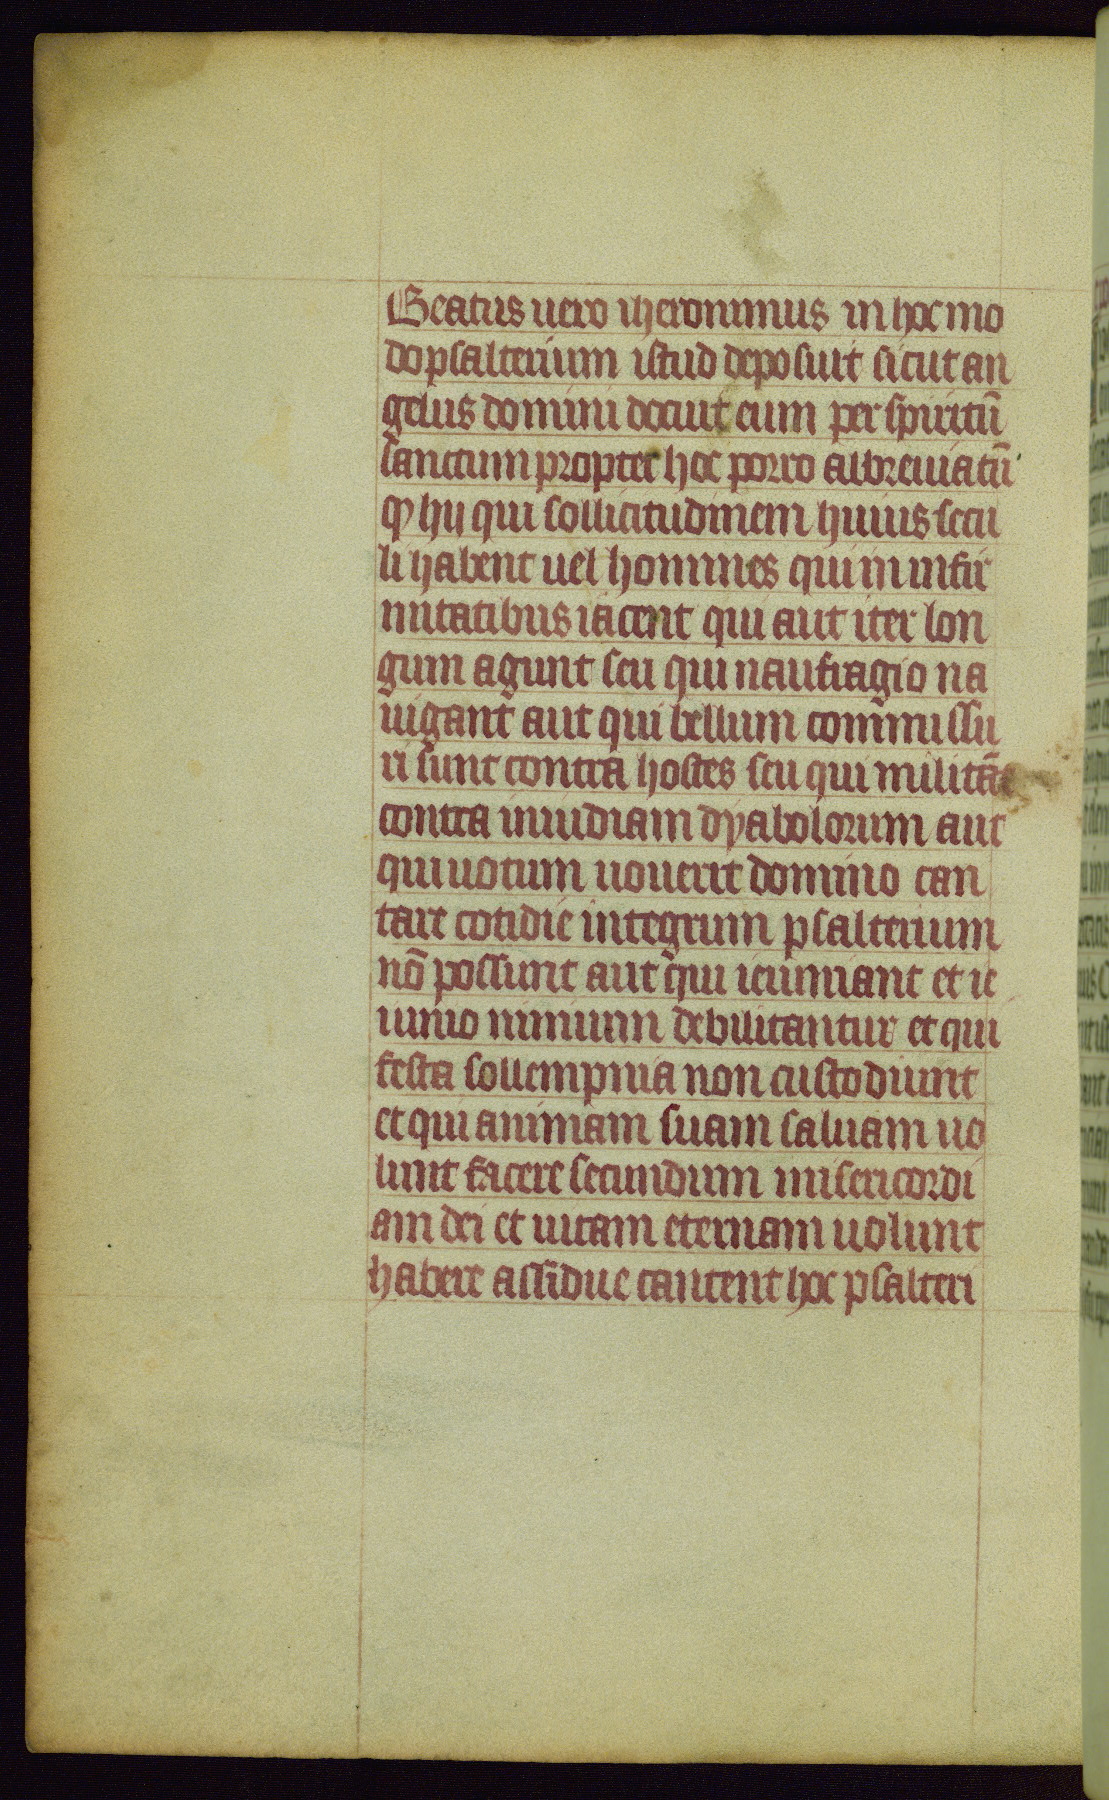 Beatus uero iheronimus in hoc mo
do psalterium istud deposuit sicut an
gelus domini docuit eum per spiritū
sanctum propter hoc porro abbreuiatū
ꝙ hij qui sollicitudinem huius secu
li habent uel homines qui in infir
mitatibus iacent qui aut iter lon
gum agunt seu qui naufragio na
uigant aut qui bellum commissu
ri sunt contra hostes seu qui militāt
contra inuidiam dyabolorum aut
qui uotum uouerit domino can
tare cotidie integrum psalterium
nō possunt aut qui ieiuniant et ie
iunio nimium debilitantur et qui
festa sollempnia non custodiunt
et qui animam suam saluam uo
lunt facere secundum misericordi
am dei et uitam eternam uolunt
habere assidue cantent hoc psalteri